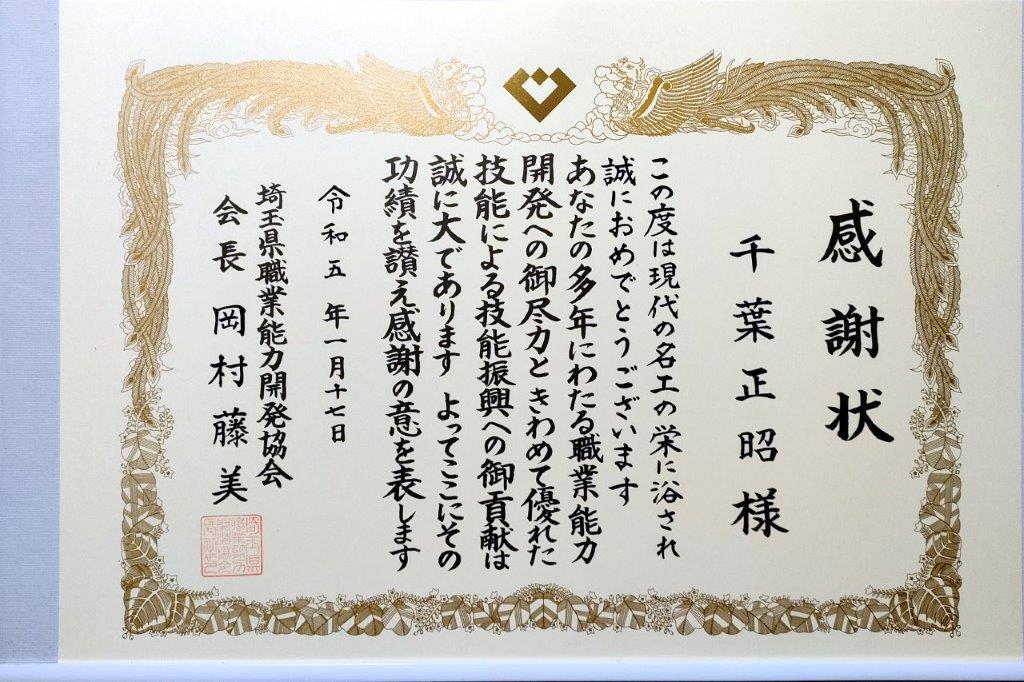 感謝状
千葉正昭様
この度は現代の名工の栄に浴され
誠におめでとうございます
あなたの多年にわたる職業能力
開発への御尽力ときわめて優れた
技能による技能振興への御貢献は
誠に大であります よってここにその
功績を讃え感謝の意を表します
令和五年一月十七日
埼玉県職業能力開発協会
会長 岡村藤美